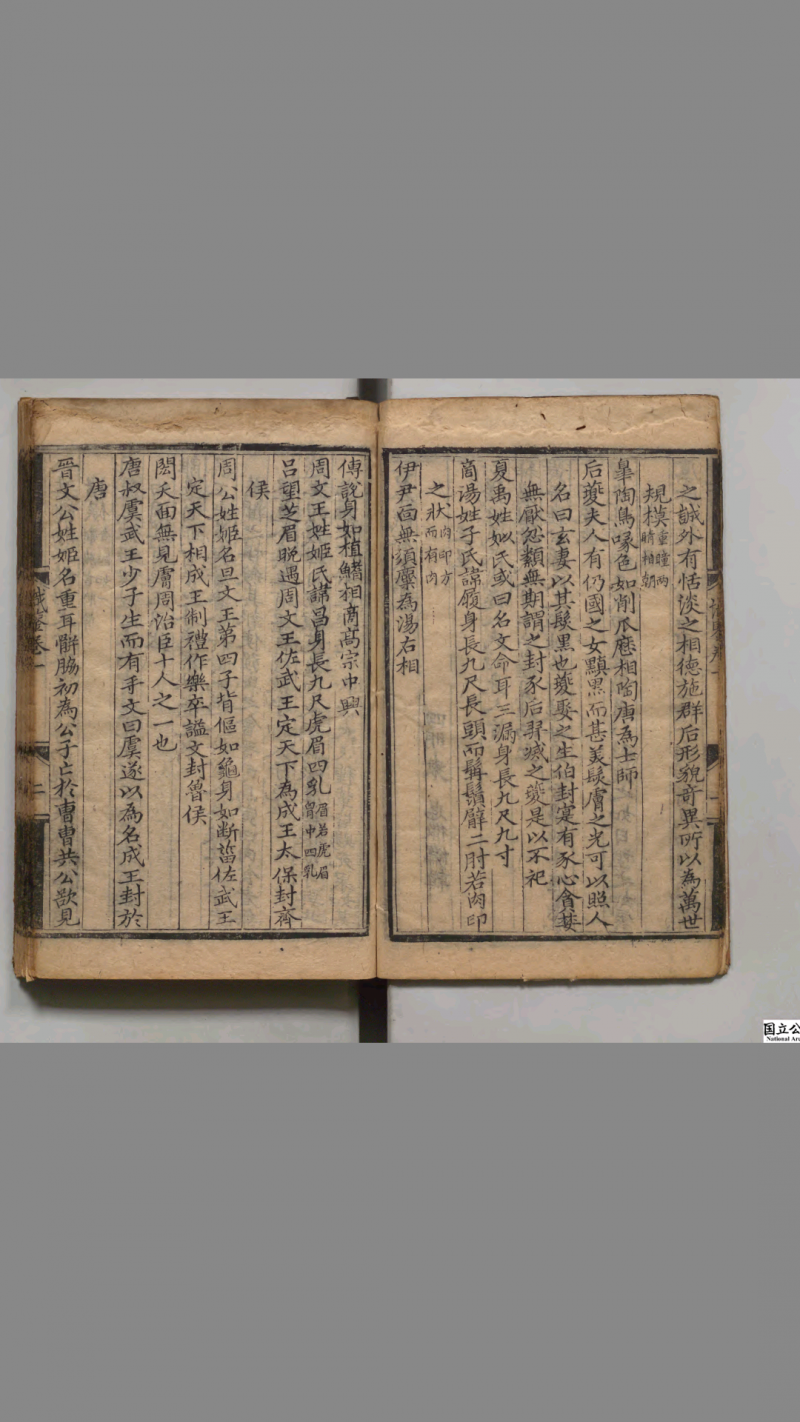 之誠外有恬淡之相德施群后形貌奇異所以為萬世
規模重瞳兩
睛相朝
皐陶鳥喙色如削瓜應相陶唐為士師
后夔夫人有仍國之女黰黒而甚美髮膚之光可以照人
名曰玄妻以其髮黒也夔娶之生伯封寔有豕心貪婪
無厭忿纇無期謂之封豕后羿滅之夔是以不祀
夏禹姓姒氏或曰名文命耳三漏身長九尺九寸
商湯姓子氏諱履身長九尺長頭而髯鬚臂二肘若肉印
之狀肉印方
而有肉
伊尹面無須麋為湯右相
傅說身如植鰭相商高宗中興
周文王姓姬氏諱昌身長九尺虎眉四乳眉若虎眉
胷中四乳
呂望芝眉晚遇周文王佐武王定天下為成王太保封齊
侯
周公姓姬名旦文王第四子背傴如龜身如断菑佐武王
定天下相成王制禮作樂卒謚文封魯侯
閎夭面無見膚周治臣十人之一也
唐叔虞武王少子生而有手文曰虞遂以為名成王封於
唐
晉文公姓姬名重耳骿脇初為公子亡於曹曹共公欲見
鑒卷一
二
国立公
National Arc